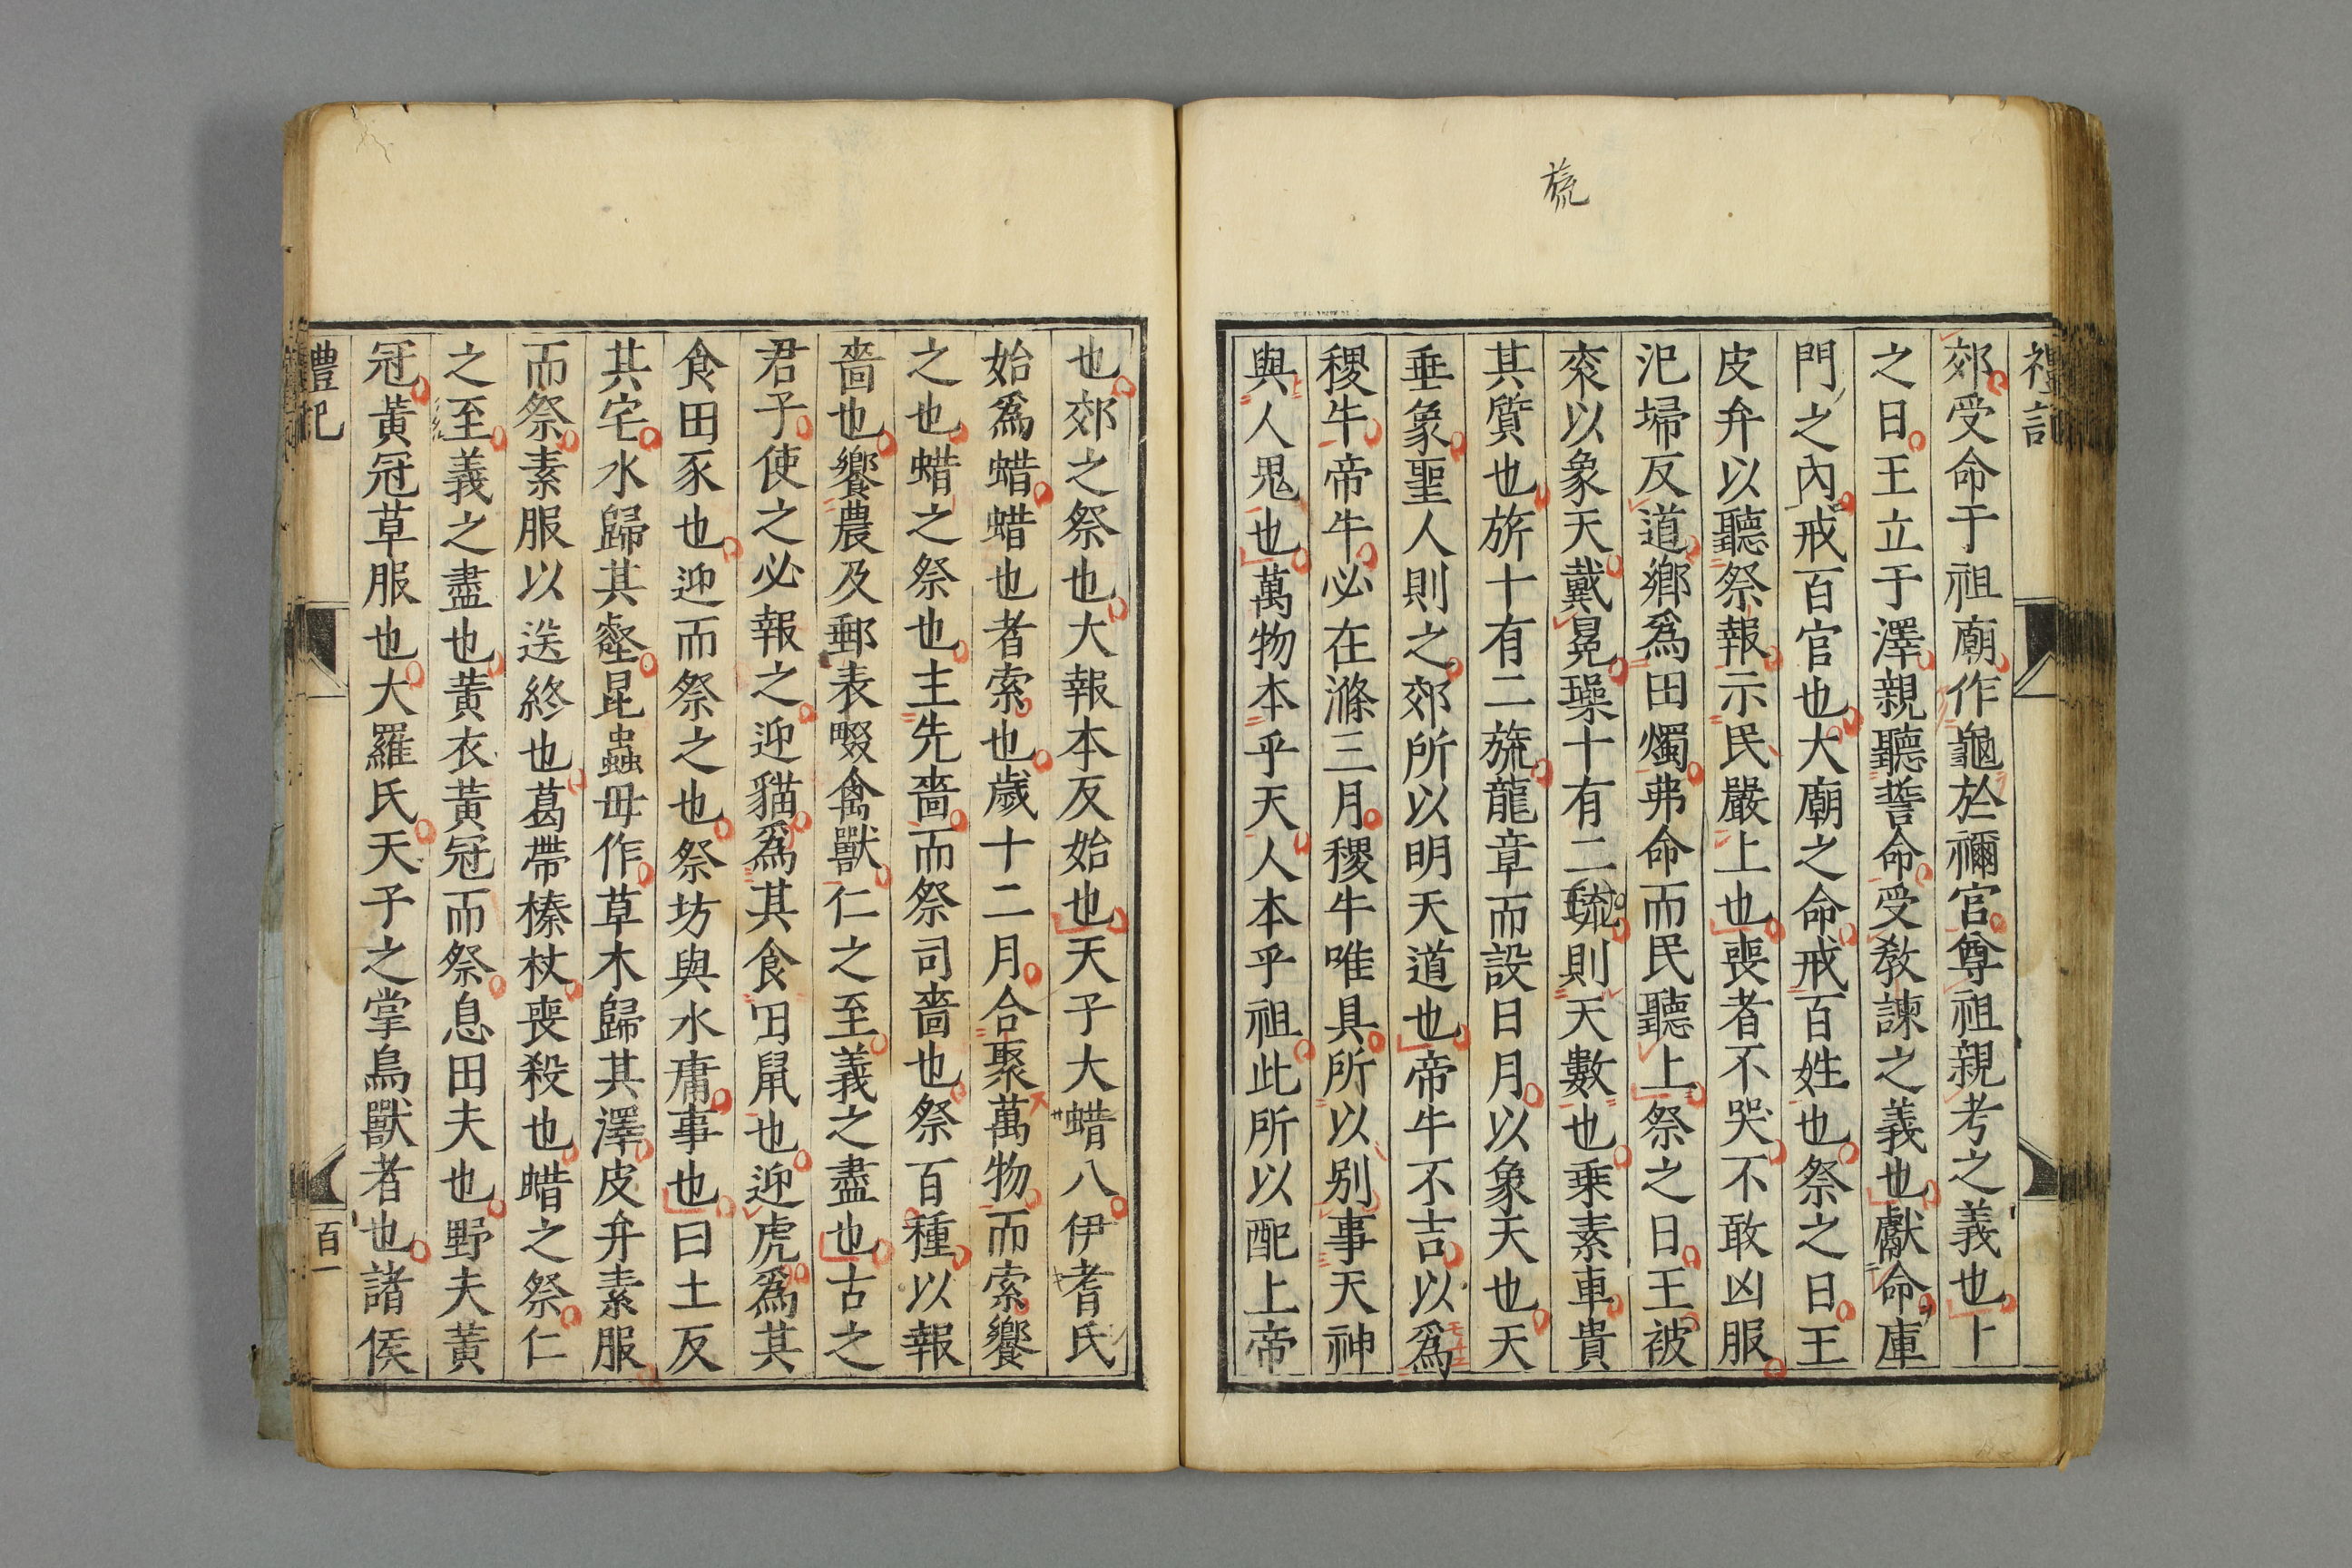 旒
禮記
郊受命于祖廟作龜於禰宮尊祖親考之義也卜
之日王立于澤親聽誓命受敎諫之義也獻命庫
門之內戒百官也大廟之命戒百姓也祭之日王
皮弁以聽祭報示民嚴上也喪者不哭不敢凶服
汜埽反道鄕爲田燭弗命而民聽上祭之日王被
衮以象天戴冕璪十有二旒則天數也乗素車貴
其質也旂十有二旒龍章而設日月以象天也天
垂象聖人則之郊所以明天道也帝牛不吉以爲
稷牛帝牛必在滌三月稷牛唯具所以别事天神
與人鬼也萬物本乎天人本乎祖此所以配上帝
也郊之祭也大報本反始也天子大蜡八伊耆氏
始爲蜡蜡也者索也歲十二月合聚萬物而索饗
之也蜡之祭也主先嗇而祭司嗇也祭百種以報
嗇也饗農及郵表畷禽獸仁之至義之盡也古之
君子使之必報之迎貓爲其食田鼠也迎虎爲其
食田豕也迎而祭之也祭坊與水庸事也曰土反
其宅水歸其壑昆蟲毋作草木歸其澤皮弁素服
而祭素服以送終也葛帶榛杖喪殺也蜡之祭仁
之至義之盡也黃衣黃冠而祭息田夫也野夫黃
冠黃冠草服也大羅氏天子之掌鳥獸者也諸侯
禮記
百一